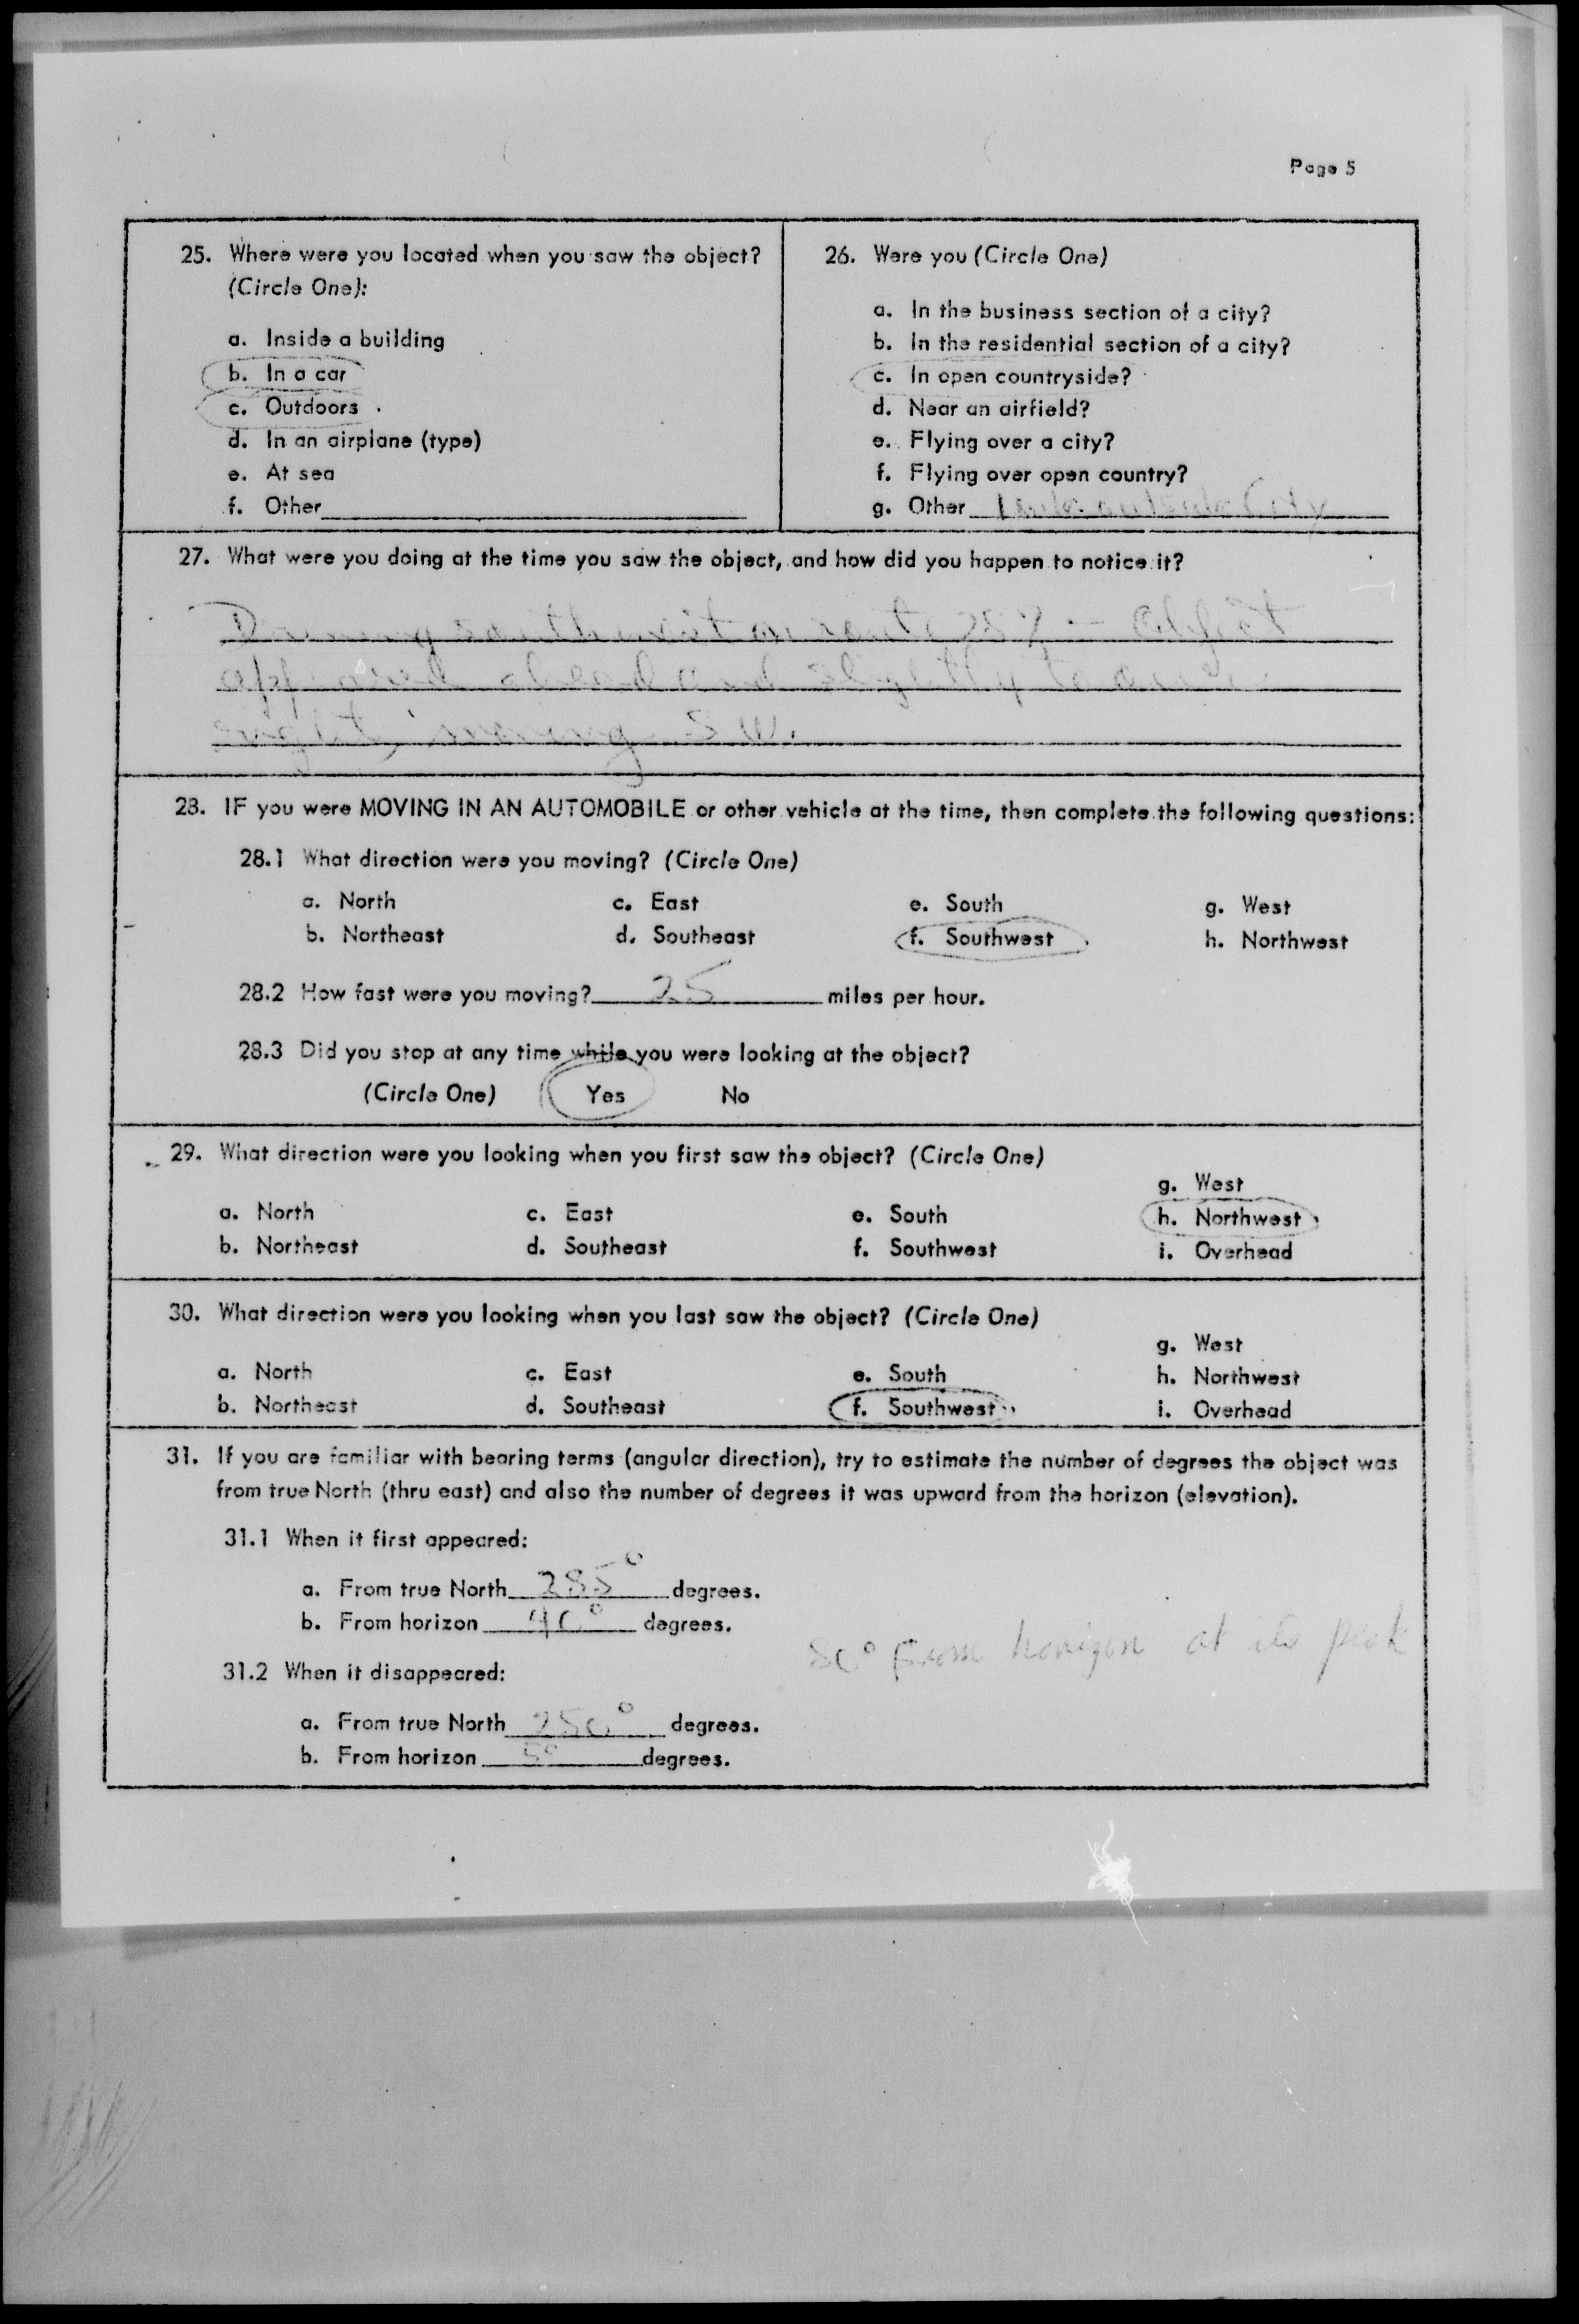 Page 5
25. Where were you located when you saw the object?
(Circle One):
a. Inside a building
b. In a car
c. Outdoors
d. In an airplane (type)
e. At sea
f. Other
26. Were you (Circle One)
a. In the business section of a city?
b. In the residential section of a city?
c. In open countryside?
d. Near an airfield?
e. Flying over a city?
f. Flying over open country?
g. Other outside City
27. What were you doing at the time you saw the object, and how did you happen to notice it?
southwest on route - Object
appeared ahead and slightly to
right, moving S.W.
28. IF you were MOVING IN AN AUTOMOBILE or other vehicle at the time, then complete the following questions:
28.1 What direction were you moving? (Circle One)
a. North c. East e. South g. West
b. Northeast d. Southeast f. Southwest h. Northwest
28.2 How fast were you moving? 25 miles per hour.
28.3 Did you stop at any time while you were looking at the object?
(Circle One) Yes No
29. What direction were you looking when you first saw the object? (Circle One)
g. West
a. North c. East e. South h. Northwest
b. Northeast d. Southeast f. Southwest i. Overhead
30. What direction were you looking when you last saw the object? (Circle One)
g. West
a. North c. East e. South h. Northwest
b. Northeast d. Southeast f. Southwest i. Overhead
31. If you are familiar with bearing terms (angular direction), try to estimate the number of degrees the object was
from true North (thru east) and also the number of degrees it was upward from the horizon (elevation).
31.1 When it first appeared:
a. From true North 285° degrees.
b. From horizon 40° degrees.
80° from horizon at its peak
31.2 When it disappeared:
a. From true North 250° degrees.
b. From horizon 5° degrees.